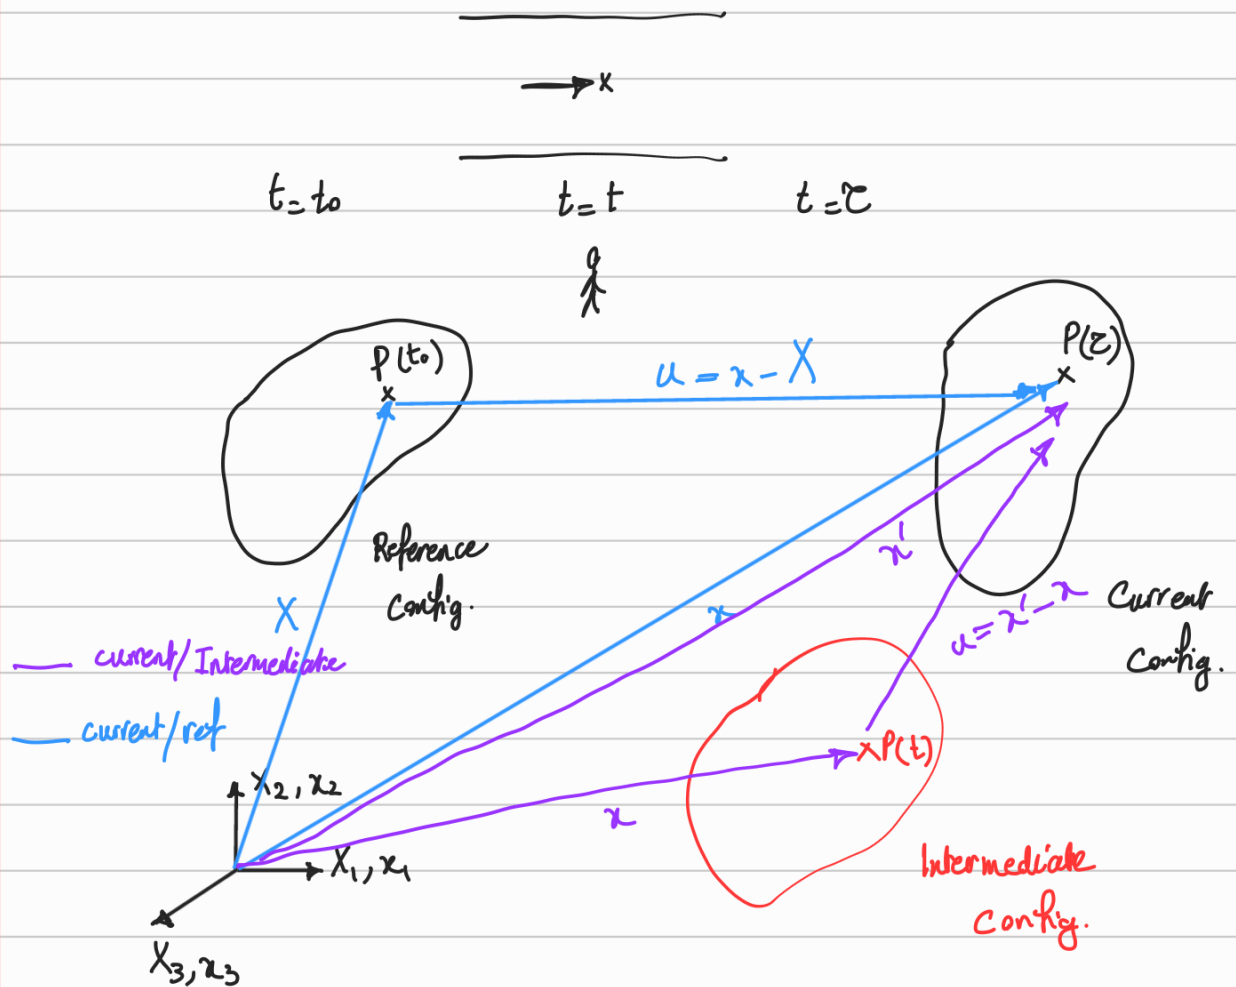 x
t = t₀
t = t
t = τ
P(t₀)
u = x - X
P(τ)
Reference
Config.
X
x
x'
u = x' - x
Current
Config.
current/Intermediate
current/ref
X₂, x₂
X₁, x₁
X₃, x₃
x
P(t)
Intermediate
Config.